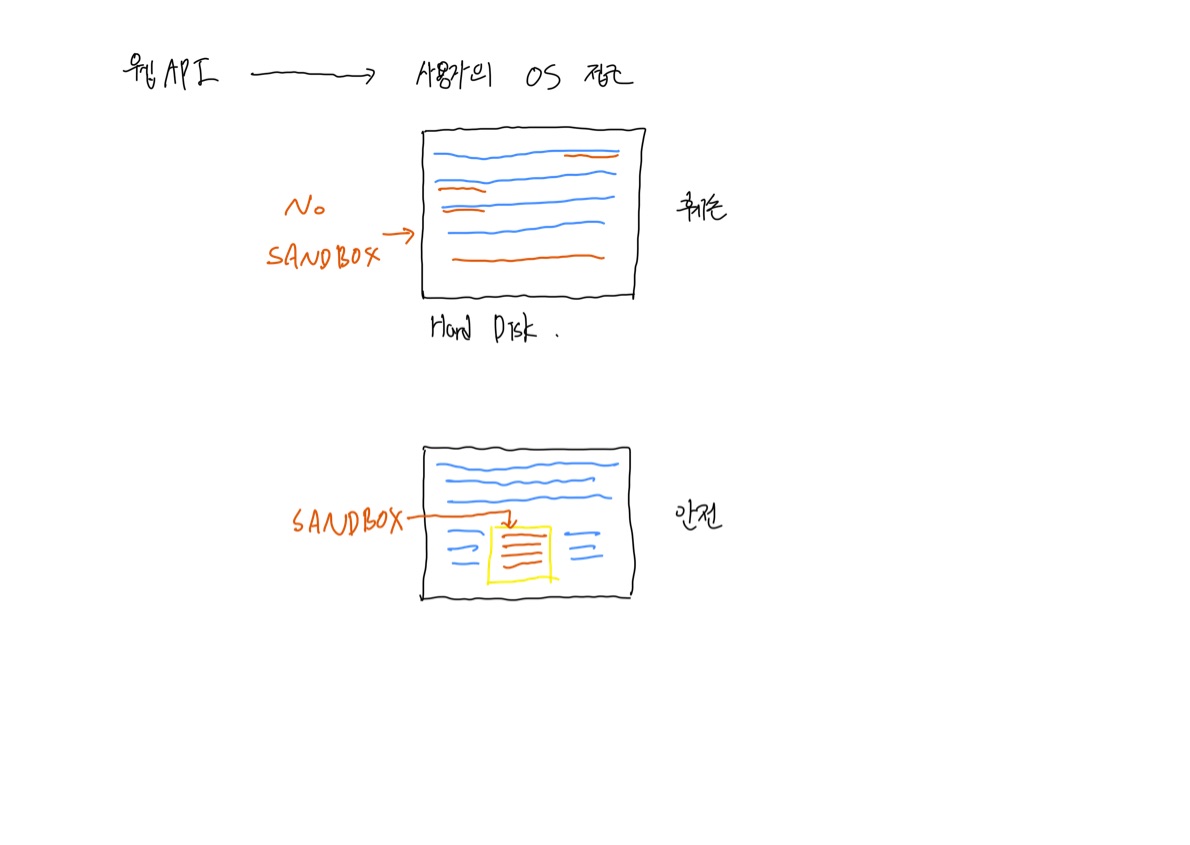 웹 API 사용자의 OS 접근
No
SANDBOX
취약
Hard Disk .
SANDBOX
안전